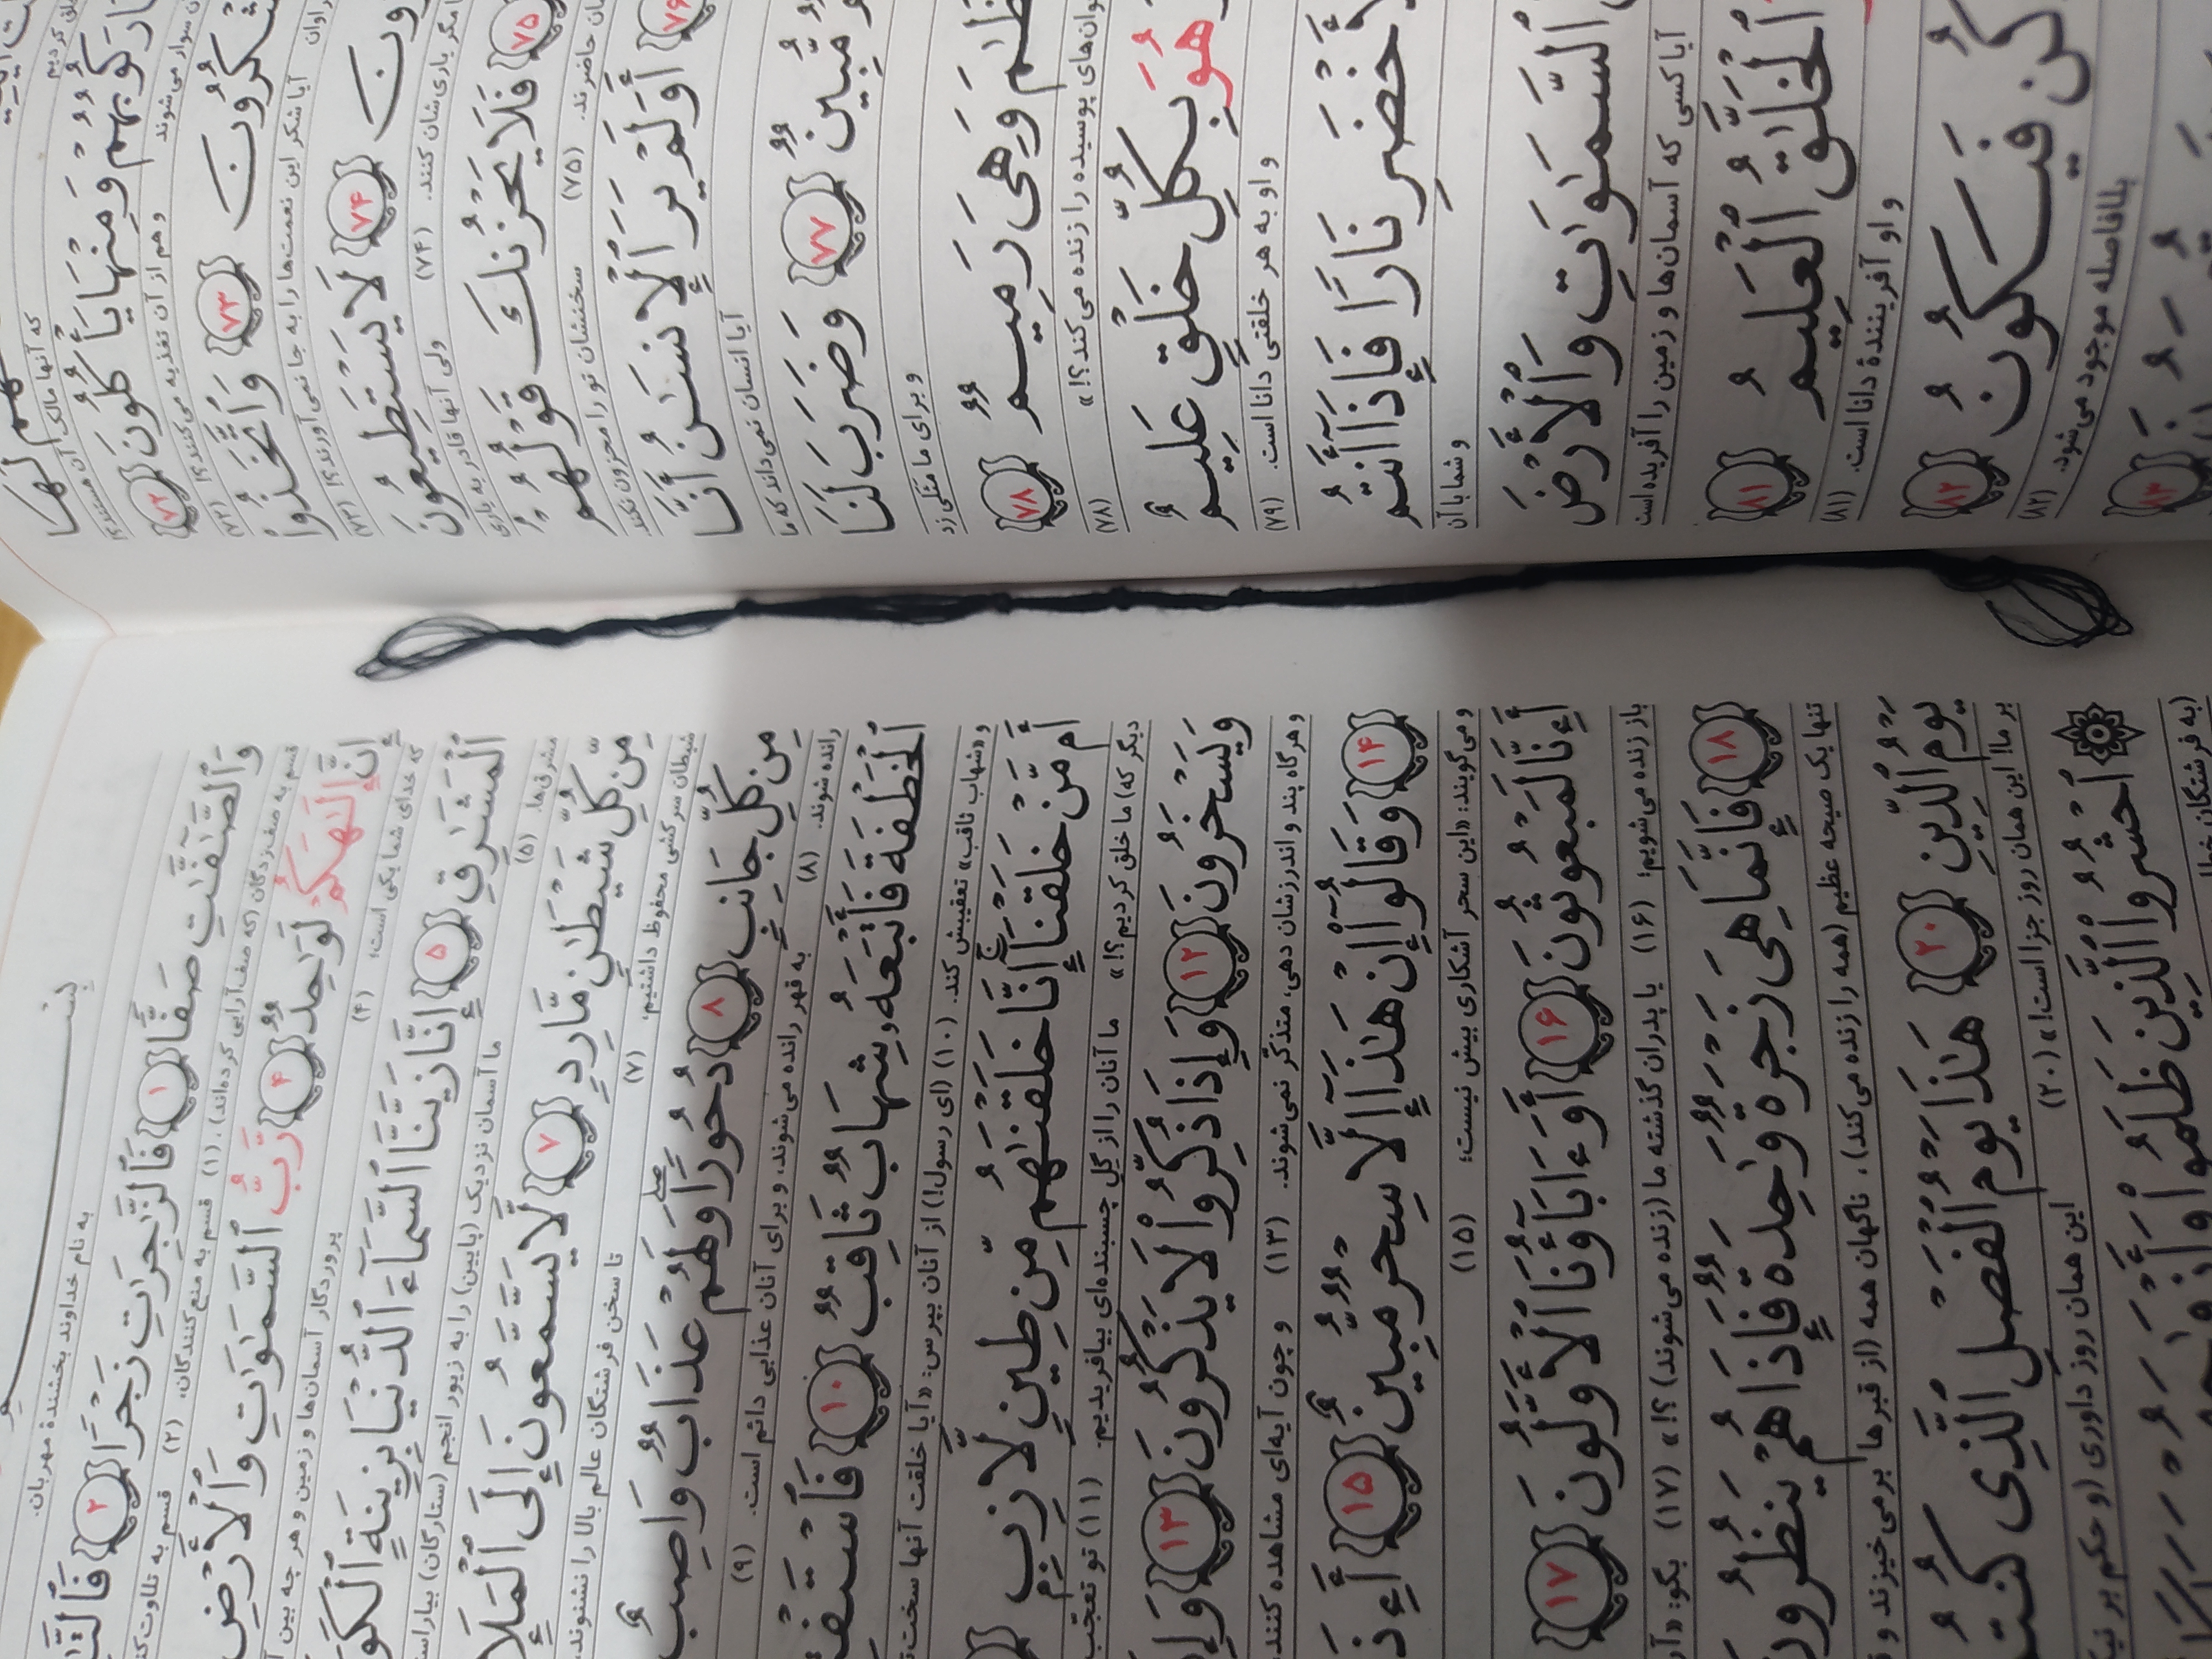 لَهَا
که آنها مالک آن هستند؟!
رَكُوبُهُمْ وَمِنْهَا يَأْكُلُونَ ٧٢
سوار می‌شوند و هم از آن تغذیه می‌کنند؟! (۷۲)
وَٱتَّخَذُوا۟ ٧٣
آیا شکر این نعمت‌ها را به جا نمی‌آورند؟! (۷۳)
٧۴ لَا يَسْتَطِيعُونَ
یاری شان کنند. (۷۴) ولی آنها قادر به یاری
٧۵ فَلَا يَحْزُنكَ قَوْلُهُمْ
حاضرند. (۷۵) سخنشان تو را محزون نکند
٧۶ أَوَلَمْ يَرَ ٱلْإِنسَٰنُ أَنَّا
آیا انسان نمی‌داند که ما
مُّبِينٌ ٧٧ وَضَرَبَ لَنَا
و برای ما مثلی زد
وَهِىَ رَمِيمٌ ٧٨
پوسیده را زنده می‌کند؟!» (۷۸)
هُوَ بِكُلِّ خَلْقٍ عَلِيمٌ
و او به هر خلقتی دانا است. (۷۹)
نَارًا فَإِذَآ أَنتُم
و شما با آن
ٱلسَّمَٰوَٰتِ وَٱلْأَرْضَ
آیا کسی که آسمان‌ها و زمین را آفریده است
ٱلْخَلَّٰقُ ٱلْعَلِيمُ ٨١
و او آفرینندهٔ دانا است. (۸۱)
كُن فَيَكُونُ ٨٢
بلافاصله موجود می‌شود. (۸۲)
٨٣
به نام خداوند بخشندهٔ مهربان.
وَٱلصَّٰٓفَّٰتِ صَفًّا ١ فَٱلزَّٰجِرَٰتِ زَجْرًا ٢
قسم به صف‌زدگان (که صف‌آرایی کرده‌اند). (۱) قسم به منع‌کنندگان، (۲) قسم به تلاوت
إِنَّ إِلَٰهَكُمْ لَوَٰحِدٌ ۴ رَّبُّ ٱلسَّمَٰوَٰتِ وَٱلْأَرْضِ
که خدای شما یکی است؛ (۴) پروردگار آسمان‌ها و زمین و هر چه بین
ٱلْمَشَٰرِقِ ۵ إِنَّا زَيَّنَّا ٱلسَّمَآءَ ٱلدُّنْيَا بِزِينَةٍ
مشرق‌ها. (۵) ما آسمان نزدیک (پایین) را به زیور انجم (ستارگان)
مِّن كُلِّ شَيْطَٰنٍ مَّارِدٍ ٧ لَّا يَسَّمَّعُونَ إِلَى ٱلْمَلَإِ
شیطان سرکشی محفوظ داشتیم، (۷) تا سخن فرشتگان عالم بالا را نشنوند،
مِن كُلِّ جَانِبٍ ٨ دُحُورًا ۖ وَلَهُمْ عَذَابٌ وَاصِبٌ
رانده شوند. (۸) به قهر رانده می‌شوند، و برای آنان عذابی دائم است. (۹)
ٱلْخَطْفَةَ فَأَتْبَعَهُۥ شِهَابٌ ثَاقِبٌ ١٠
و «شهاب ثاقب» تعقیبش کند. (۱۰) (ای رسول!) از آنان بپرس: «آیا خلقت آنها
أَم مَّنْ خَلَقْنَآ ۚ إِنَّا خَلَقْنَٰهُم مِّن طِينٍ لَّازِبٍ
دیگر که) ما خلق کردیم؟!» ما آنان را از گِل چسبنده‌ای بیافریدیم. (۱۱) تو تعجّب
وَيَسْخَرُونَ ١٢ وَإِذَا ذُكِّرُوا۟ لَا يَذْكُرُونَ ١٣
و هرگاه پند و اندرزشان دهی، متذکّر نمی‌شوند. (۱۳) و چون آیه‌ای مشاهده کنند،
١۴ وَقَالُوٓا۟ إِنْ هَٰذَآ إِلَّا سِحْرٌ مُّبِينٌ ١۵
و می‌گویند: «این سحر آشکاری بیش نیست؛ (۱۵)
أَءِنَّا لَمَبْعُوثُونَ ١۶ أَوَءَابَآؤُنَا ٱلْأَوَّلُونَ ١٧
باز زنده می‌شویم؛ (۱۶) یا پدران گذشته ما (زنده می‌شوند)؟!» (۱۷) بگو:
١٨ فَإِنَّمَا هِىَ زَجْرَةٌ وَٰحِدَةٌ فَإِذَا هُمْ يَنظُرُونَ
تنها یک صیحه عظیم (همه را زنده می‌کند)، ناگهان همه (از قبرها بر می خیزند و
يَوْمُ ٱلدِّينِ ٢٠ هَٰذَا يَوْمُ ٱلْفَصْلِ ٱلَّذِى
بر ما! این همان روز جزا است!» (۲۰) این همان روز داوری (و حکم بر
ٱحْشُرُوا۟ ٱلَّذِينَ ظَلَمُوا۟
(به فرشتگان